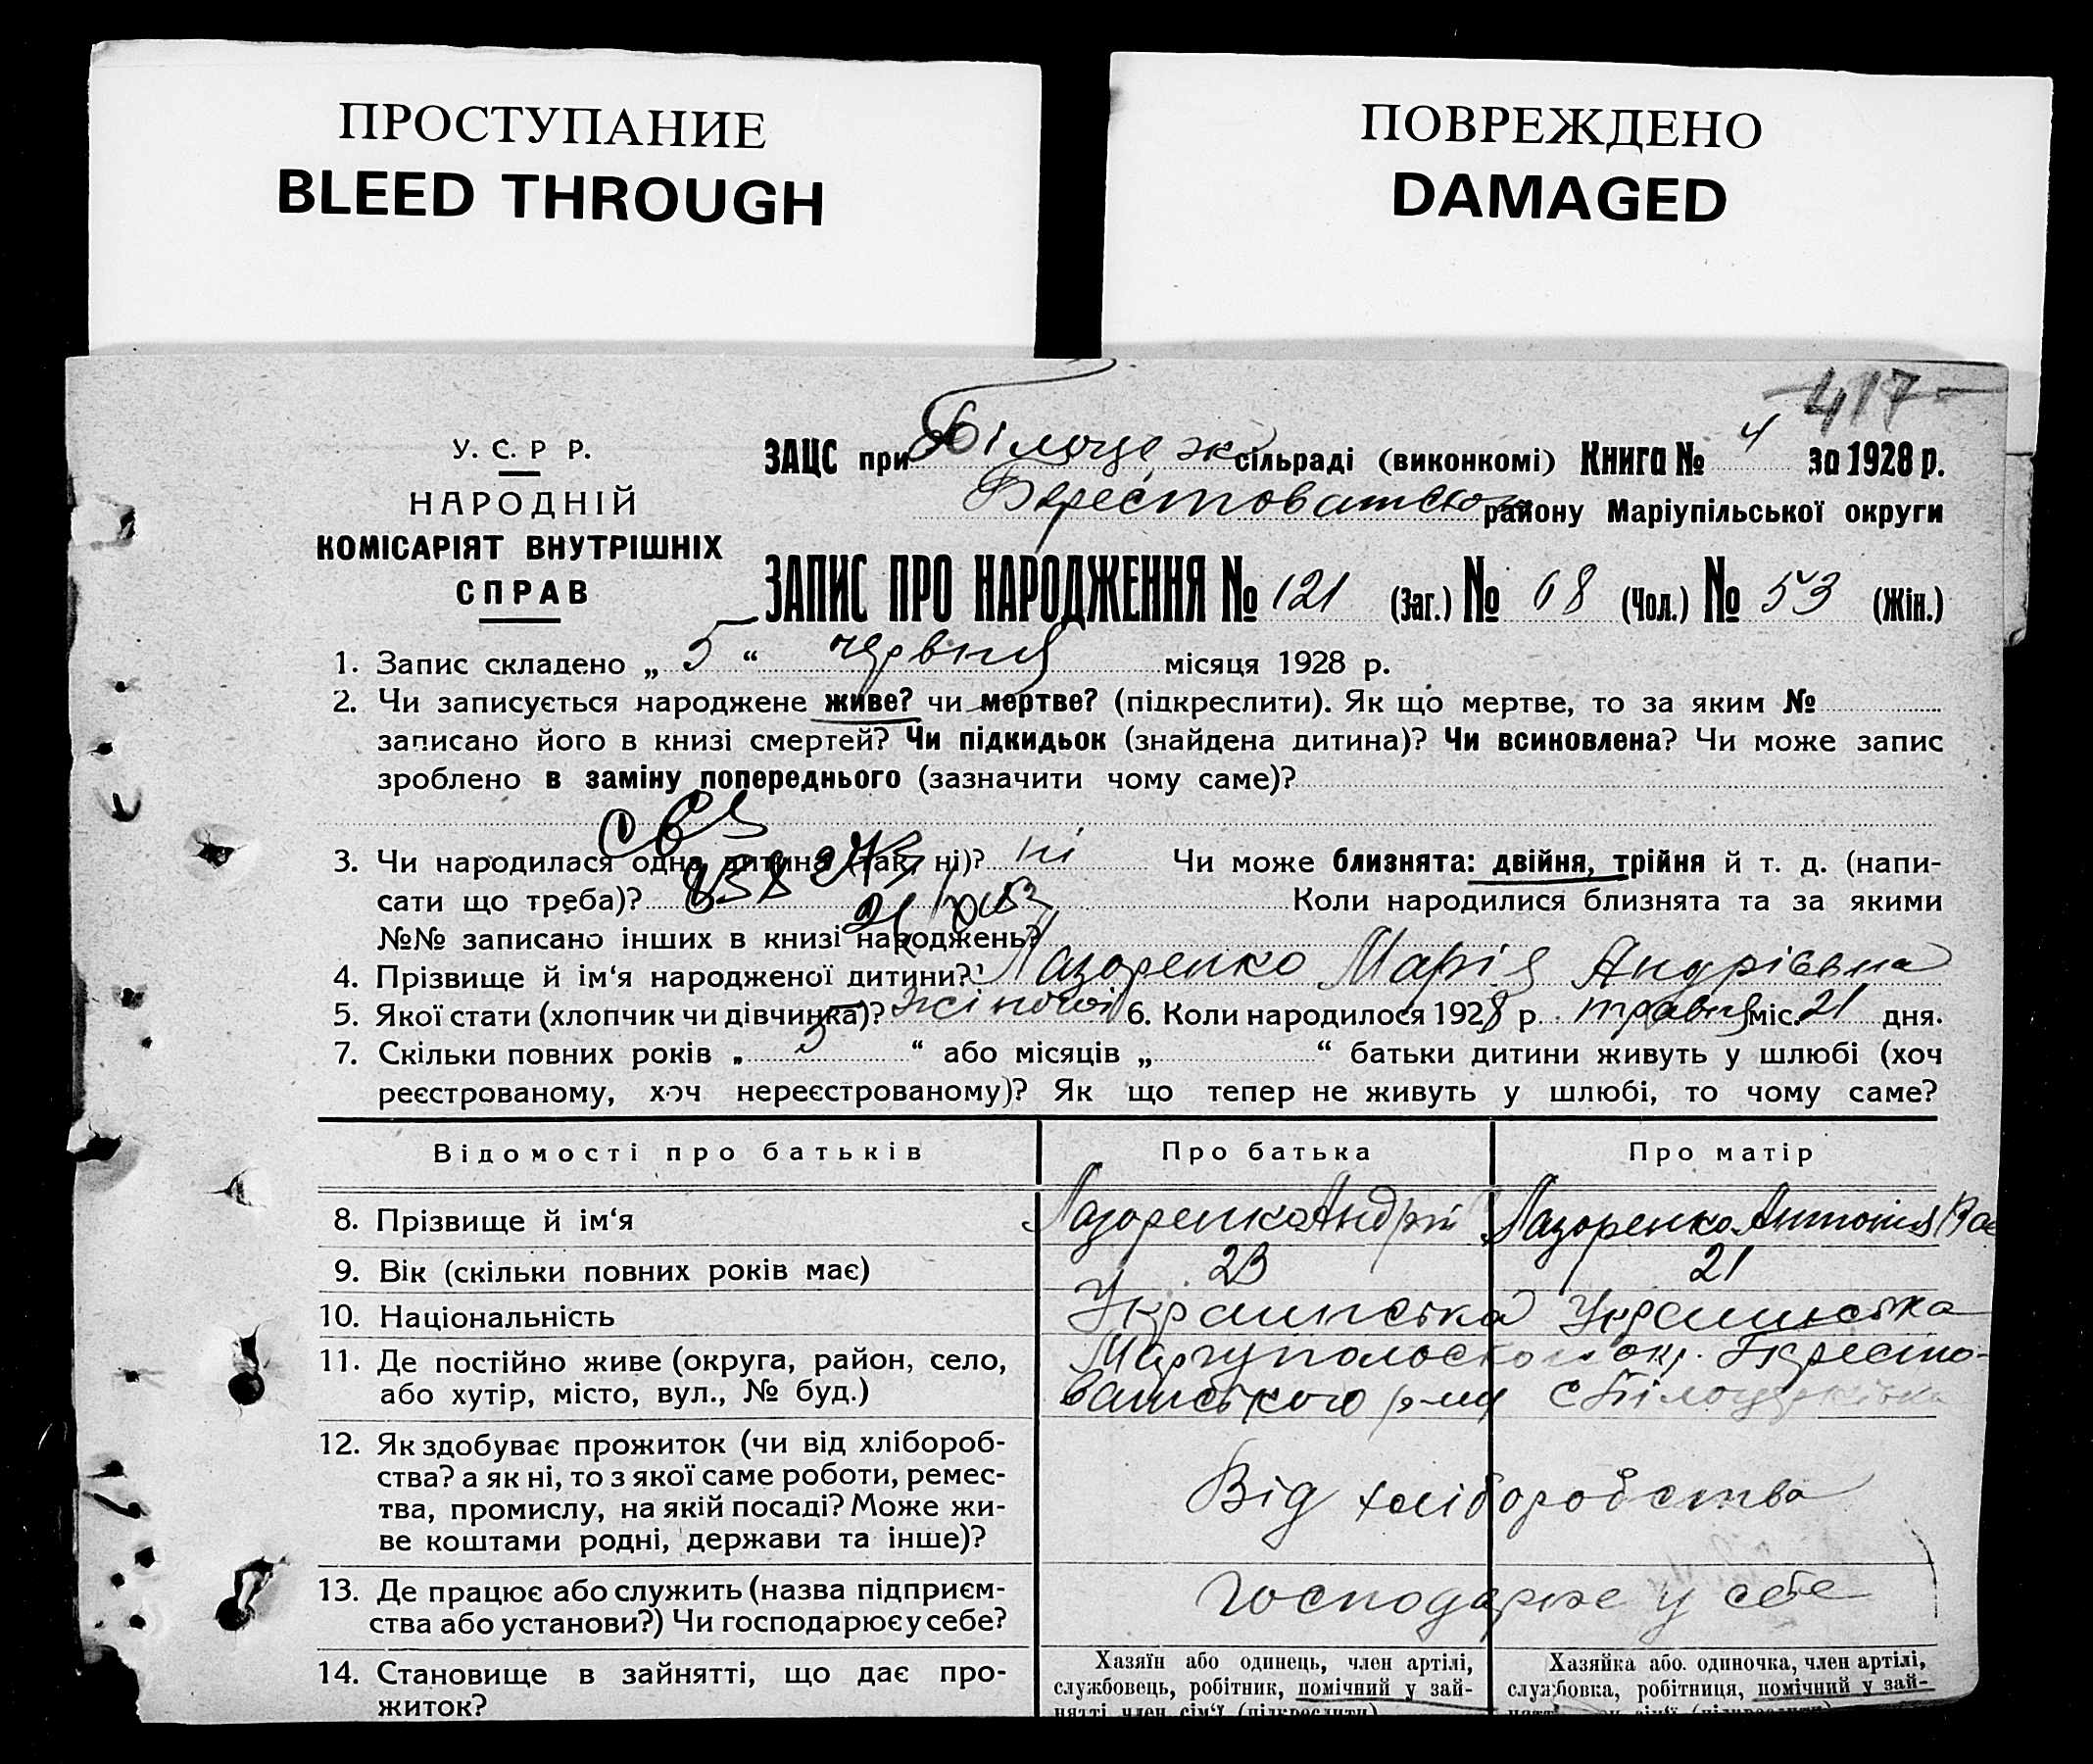 ПРОСТУПАНИЕ
BLEED THROUGH
ПОВРЕЖДЕНО
DAMAGED
417
У. С. Р Р.
НАРОДНІЙ
КОМІСАРІЯТ ВНУТРІШНІХ
СПРАВ
ЗАЦС при Білоцерк сільраді (виконкомі) Книга № 4 за 1928 р.
Берестоватсько району Маріупільської округи
ЗАПИС ПРО НАРОДЖЕННЯ № 121 (Заг.) № 68 (Чол.) № 53 (Жін.)
1. Запис складено „ 5 “ червня місяця 1928 р.
2. Чи записується народжене живе? чи мертве? (підкреслити). Як що мертве, то за яким №
записано його в книзі смертей? Чи підкидьок (знайдена дитина)? Чи всиновлена? Чи може запис
зроблено в заміну попереднього (зазначити чому саме)?
3. Чи народилася одна дитина (так, ні)? ні Чи може близнята: двійня, трійня й т. д. (напи-
сати що треба)? Коли народилися близнята та за якими
№№ записано інших в книзі народжень?
4. Прізвище й ім‘я народженої дитини? Лазоренко Марія Андріівна
5. Якої стати (хлопчик чи дівчинка)? жіночої 6. Коли народилося 1928 р. травня міс. 21 дня.
7. Скільки повних років „ 3 “ або місяців „ “ батьки дитини живуть у шлюбі (хоч
реєстрованому, хоч нереєстрованому)? Як що тепер не живуть у шлюбі, то чому саме?
Відомості про батьків Про батька Про матір
8. Прізвище й ім‘я Лазоренко Андрій Лазоренко Антонія
9. Вік (скільки повних років має) 23 21
10. Національність Украинська Украинська
11. Де постійно живе (округа, район, село, Маріупольської окр. Бересто-
або хутір, місто, вул., № буд.) ватського р-ну с Білоцерківка
12. Як здобуває прожиток (чи від хлібороб-
ства? а як ні, то з якої саме роботи, ремес-
тва, промислу, на якій посаді? Може жи-
ве коштами родні, держави та інше)?
Від хліборобства
13. Де працює або служить (назва підприєм-
ства або установи?) Чи господарює у себе?
Господарює у себе
14. Становище в зайнятті, що дає про-
житок?
Хазяїн або одинець, член артілі,
службовець, робітник, помічний у зай-
нятті член сім‘ї (підкреслити)
Хазяйка або одиночка, член артілі,
службовка, робітниця, помічний у зай-